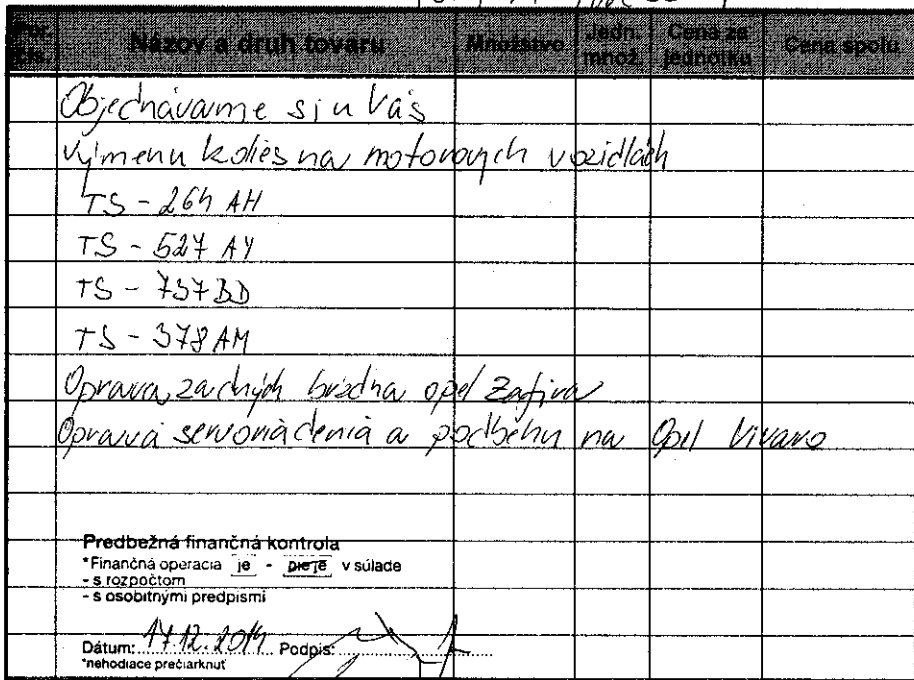 Por. čís. Názov a druh tovaru Množstvo Jedn. množ. Cena za jednotku Cena spolu
Objednávame si u Vás
výmenu kolies na motorových vozidlách
TS - 264 AH
TS - 527 AY
TS - 737 BD
TS - 378 AM
Oprava zadných bŕzd na opel Zafira
Oprava servoriadenia a podběhu na Opel Vivaro
Predbežná finančná kontrola
*Finančná operacia je - nie je v súlade
- s rozpočtom
- s osobitnými predpismi
Dátum: 17.12.2014 Podpis:
*nehodiace prečiarknuť